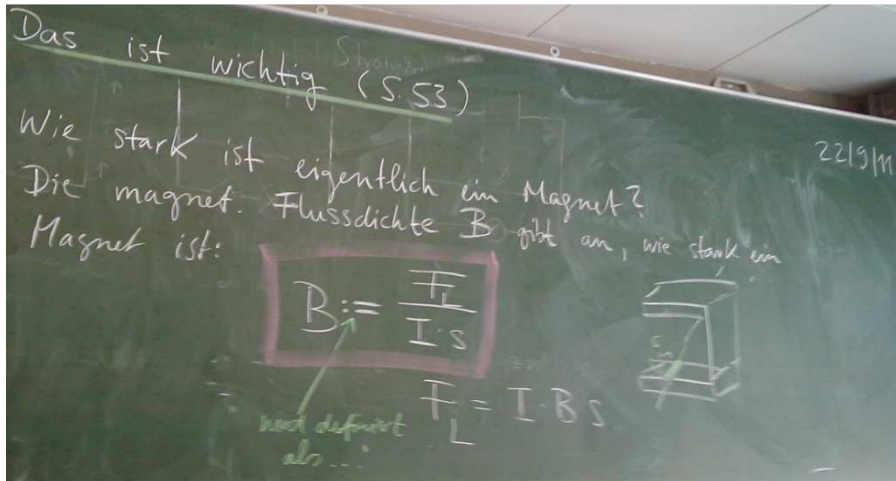 Das ist wichtig (S.53)
22/9/11
Wie stark ist eigentlich ein Magnet?
Die magnet. Flussdichte B gibt an, wie stark ein
Magnet ist:
B := F_L / (I · s)
F_L = I · B s
wird definiert
als ...
s